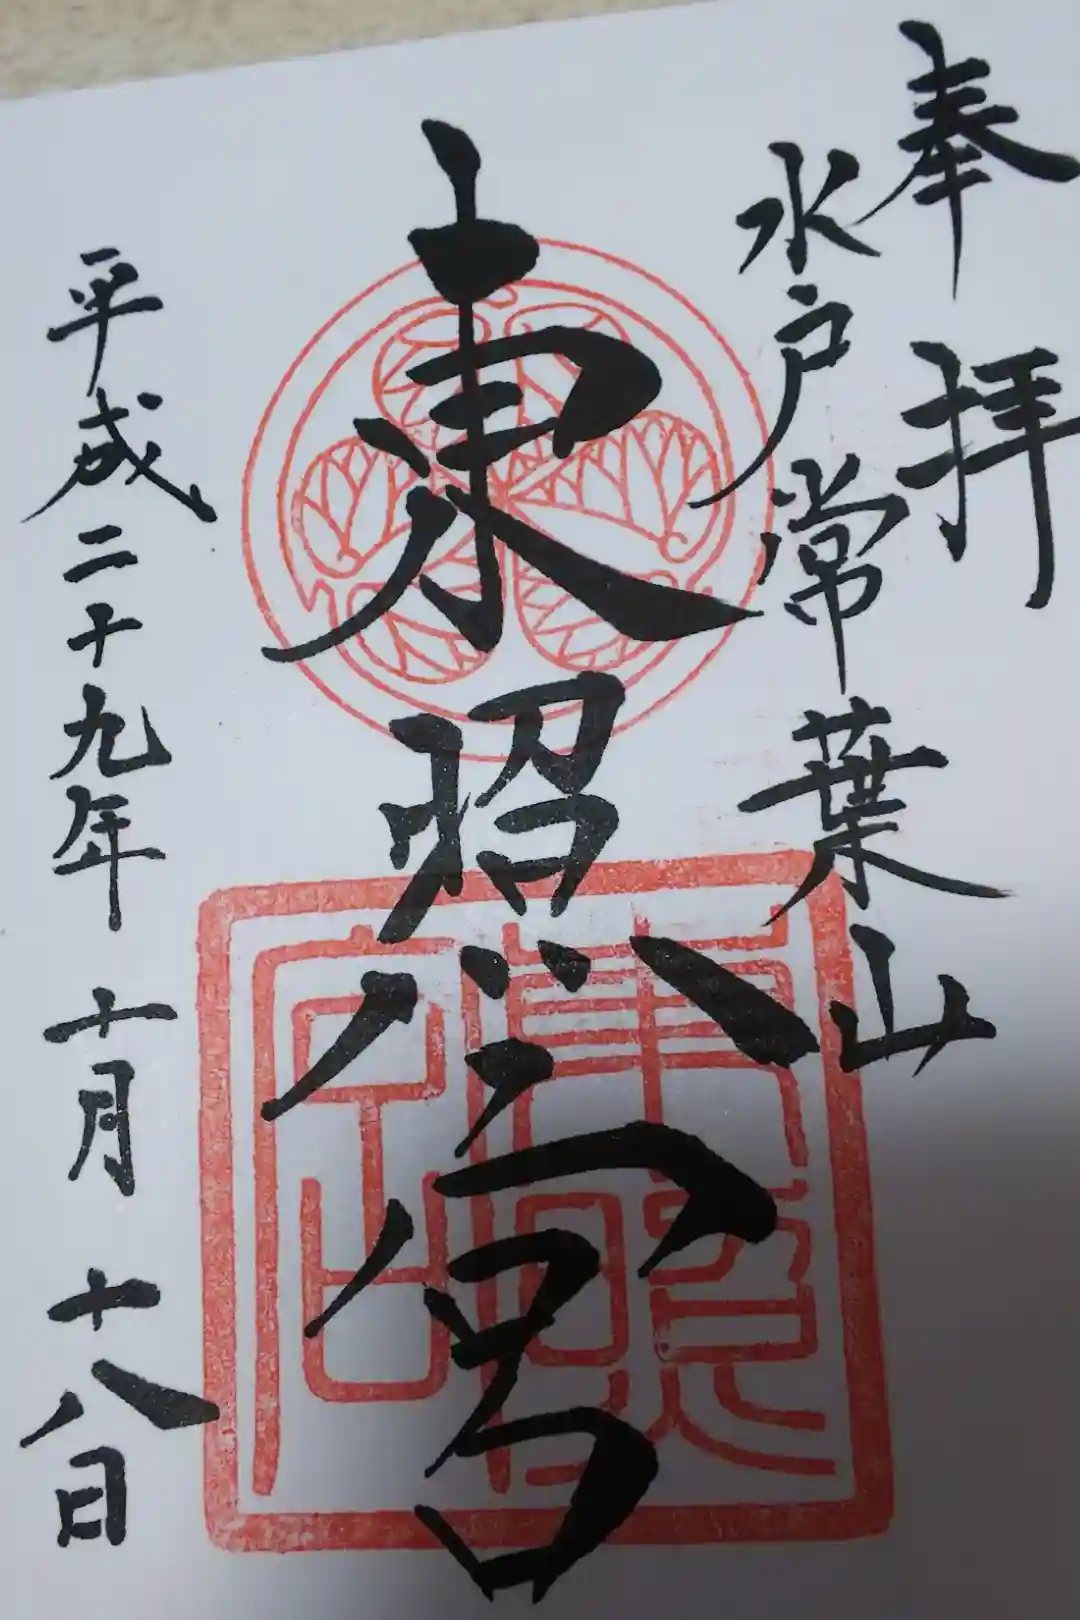 奉拝
水戸常葉山
東照宮
東照宮
平成二十九年十月十八日